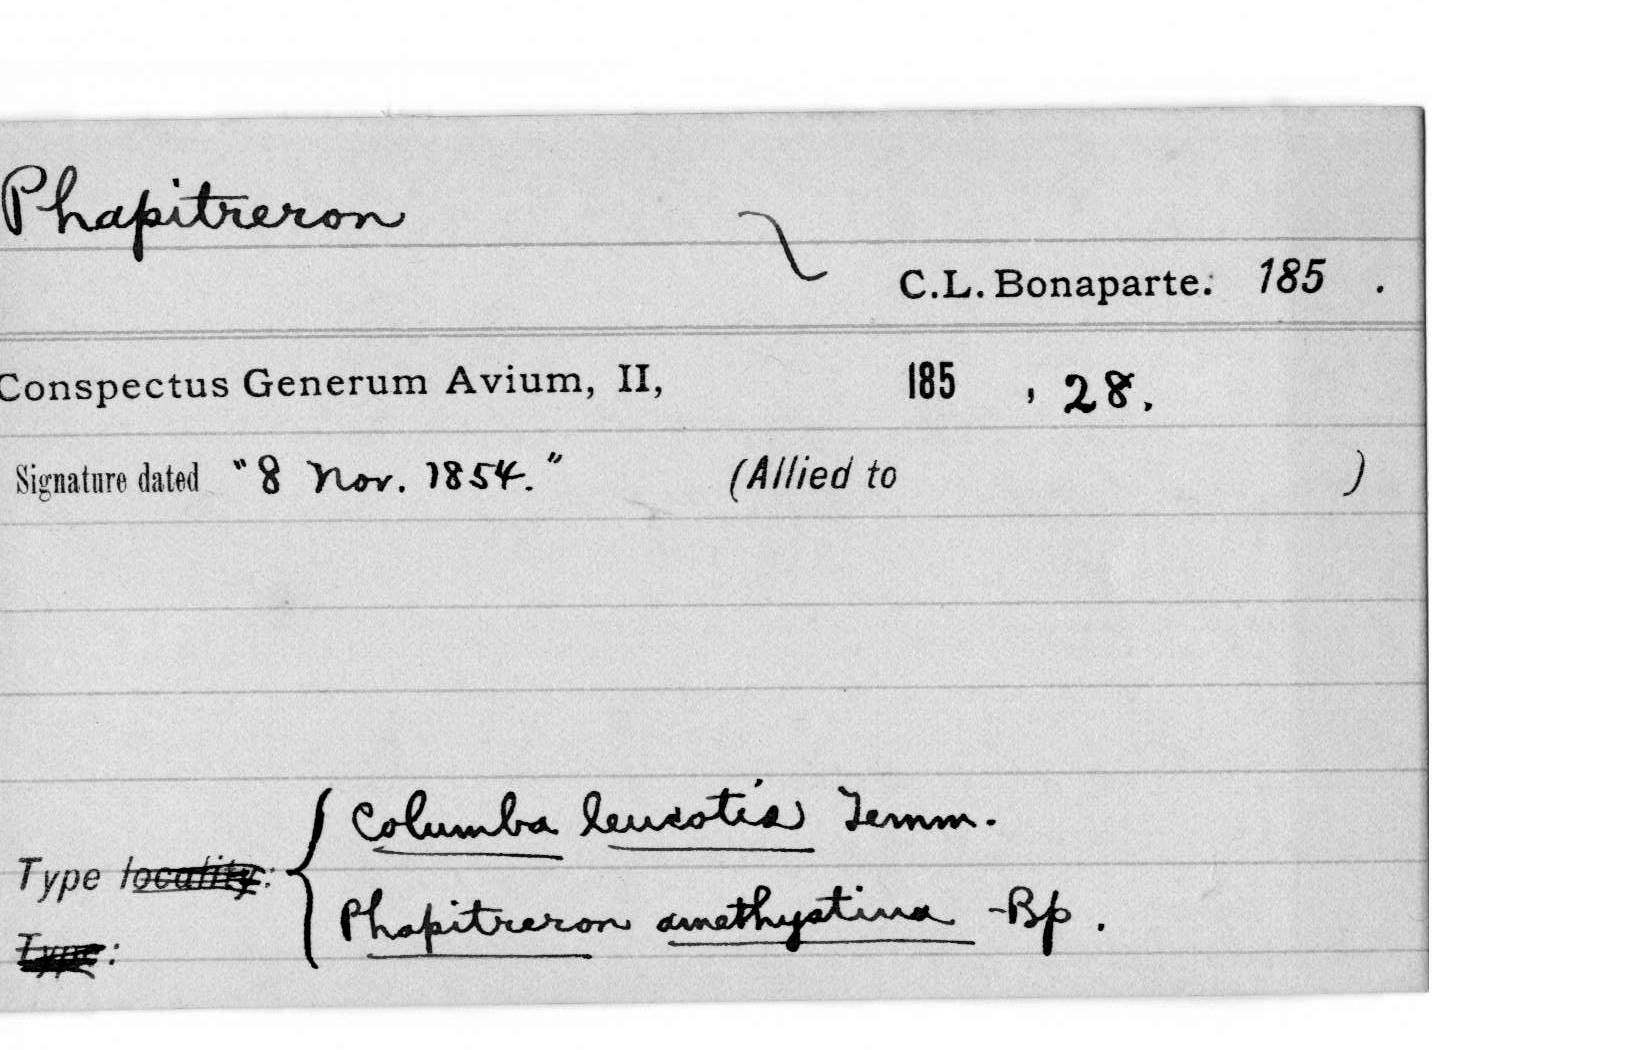 Phapitreron
C.L. Bonaparte. 185 .
Conspectus Generum Avium, II, 185 , 28.
Signature dated "8 Nov. 1854." (Allied to )
Columba leucotis Temm.
Type locality:
Phapitreron amethystina Bp.
Type: